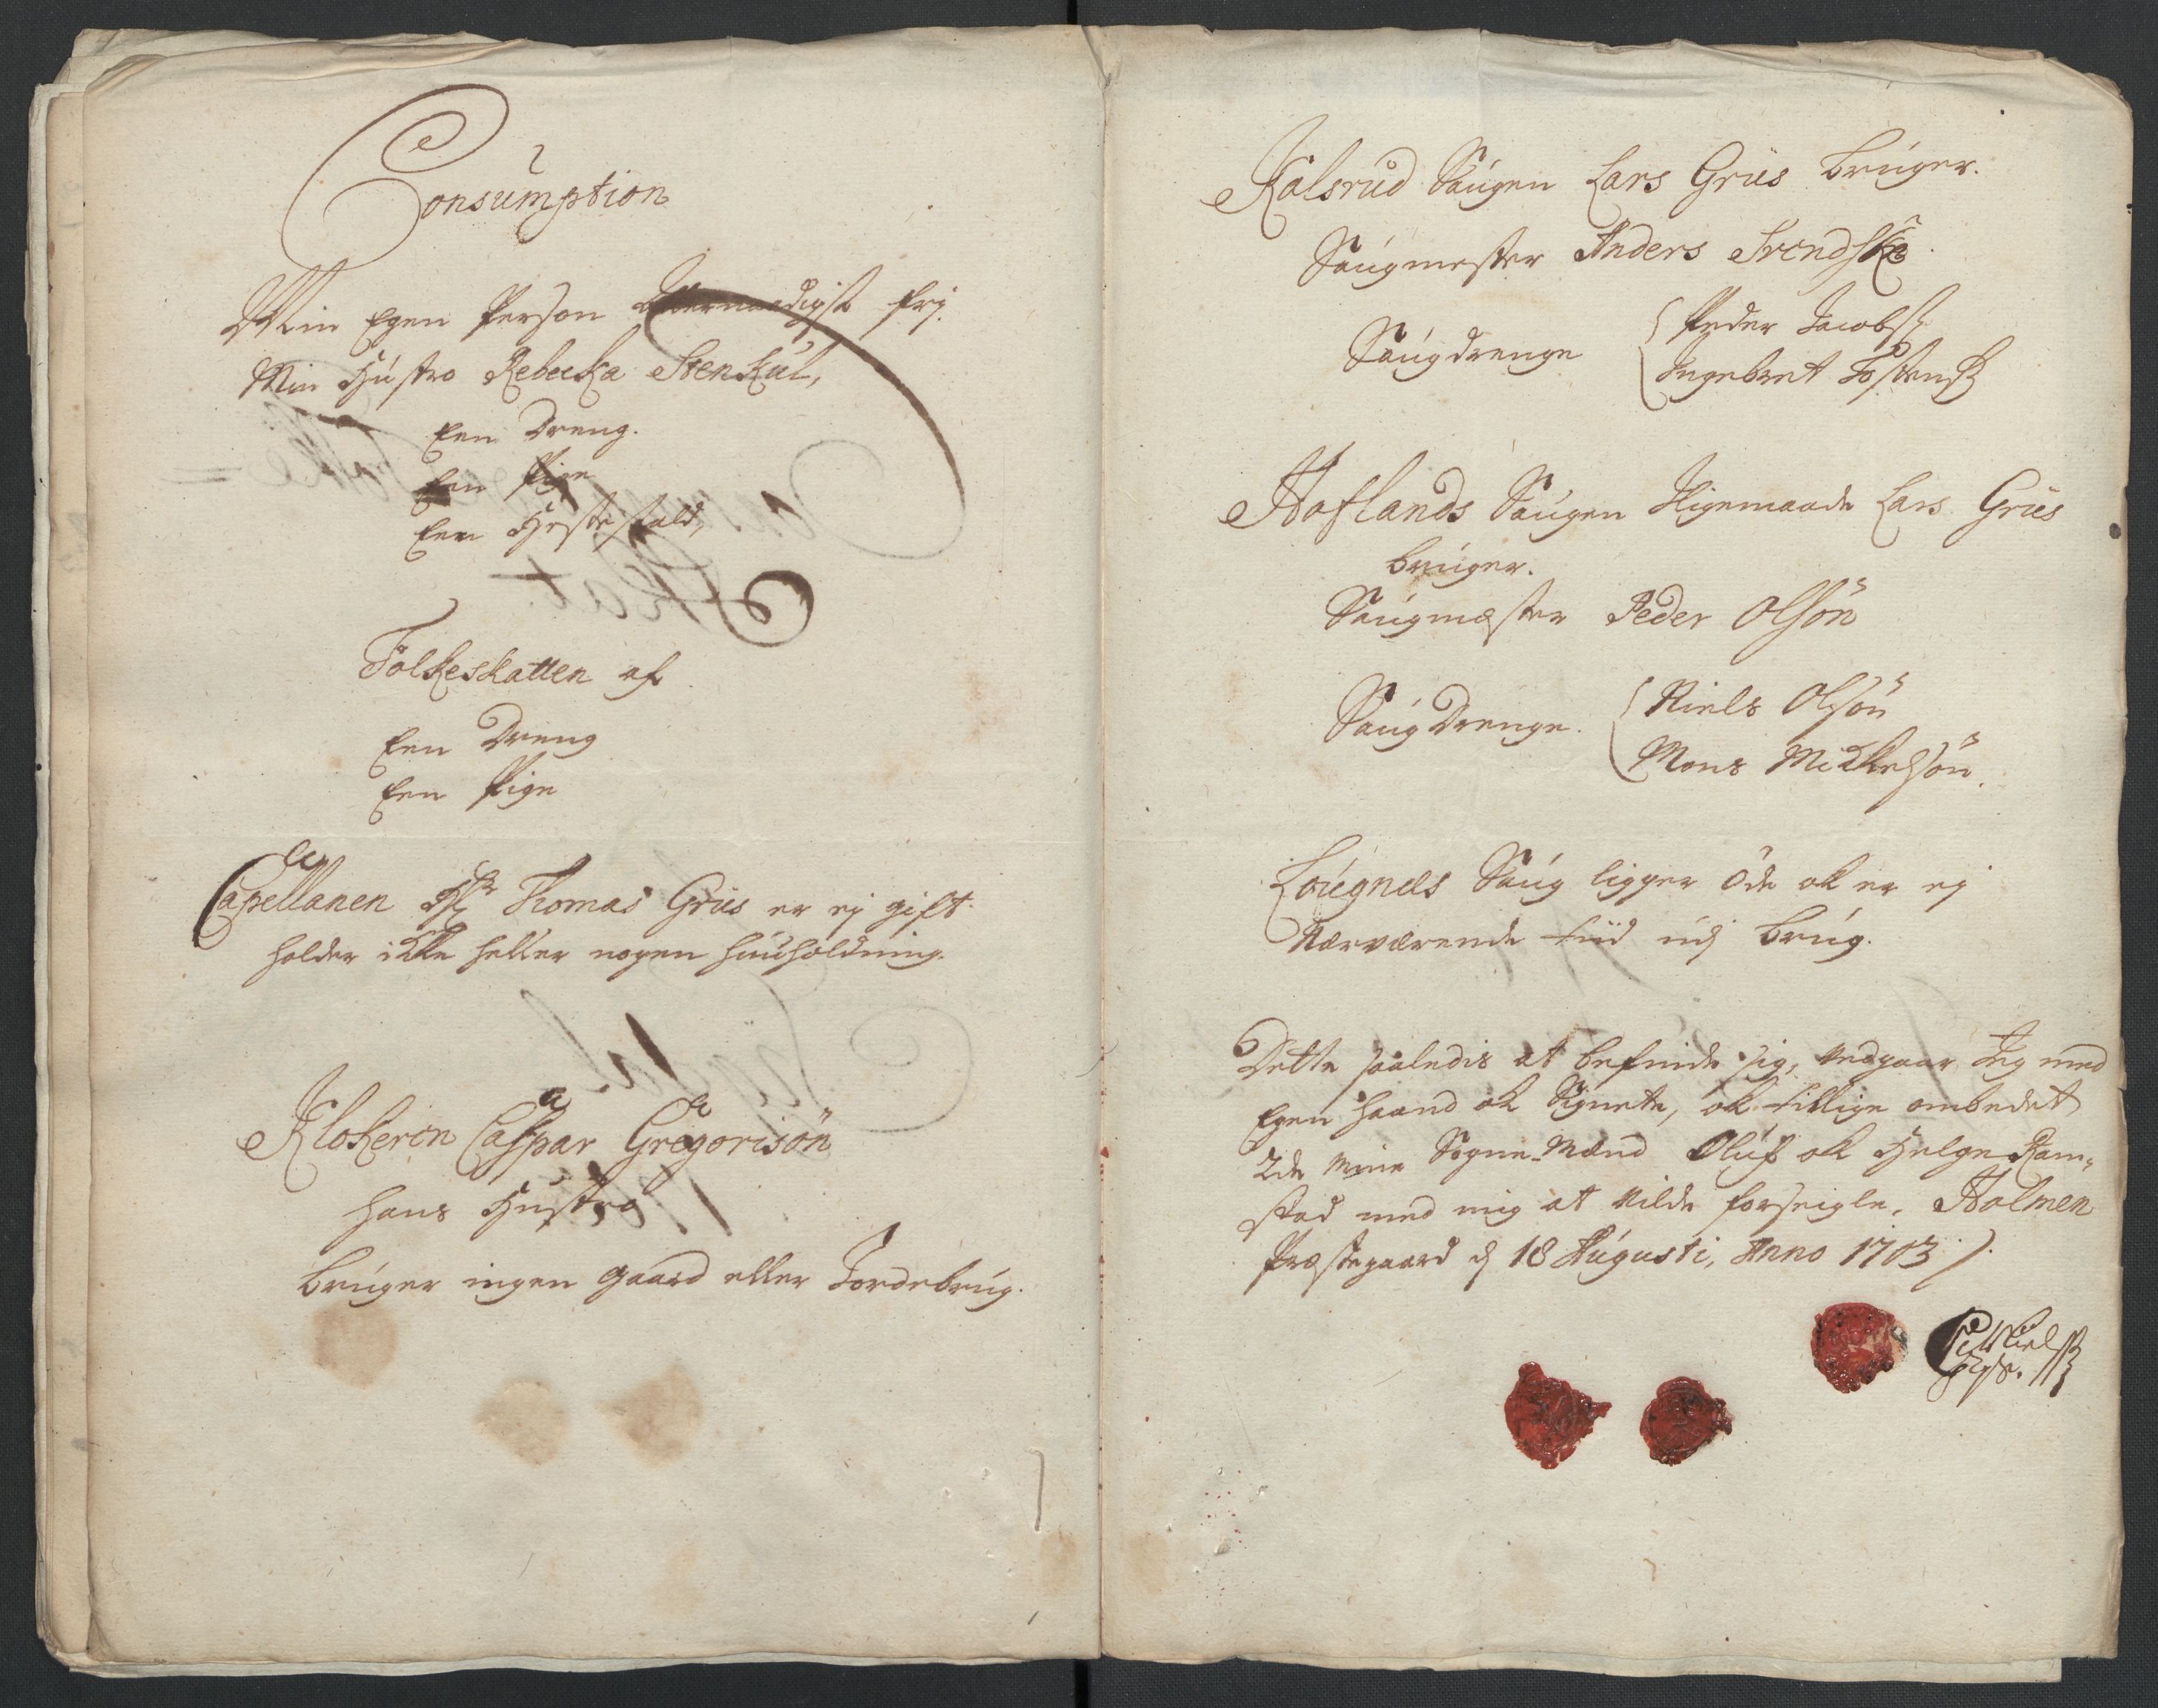 Consumption
Min Egen Person allernaadigst frj.
Min Hústro Rebecka Stenkúl,
Een Dreng.
Een Pige
Een Hæste stald,
Folkeskatten af
Een Dreng
Een Pige
Capellanen Hr Thomas Grüs er ej gift
holder ikke heller nogen húúsholdning.
Klokeren Caspar Gregorisön
hans Hústro
brúger ingen gaard eller Jordebrúg.
Kalsrúd Saúgen Lars Grüs brúger.
Saúgmester Anders Svendsk
Saúgdrenge Peder Jacobss
Ingebret Tostenss
Hoflands Saúgen Ligemaade Lars Grüs
brúger.
Saúgmæster Peder Olsön
Saúg Drenge. Niels Olsön
Mons Mickelsön.
Loúgnæs Saúg ligger Öde ok er ej
Nærværende tiid údj brúg.
Dette saaledis at befinde sig, vedgaar Jeg med
Egen haand ok Signete, ok tillige ombedet
2de mine Sogne-Mænd Olúf ok Helge Ram-
stad med mig at vilde forseigle. Holmen
Præstegaard d 18 Aúgústi, Anno 1703 /.